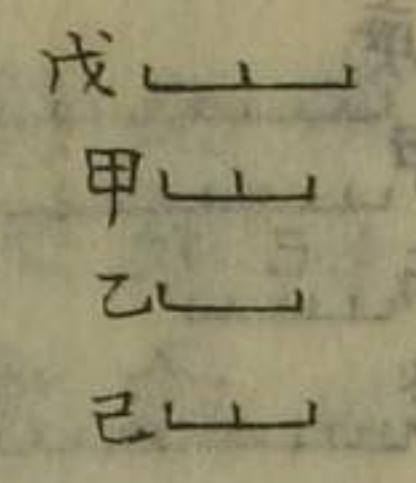 戊
甲
乙
己